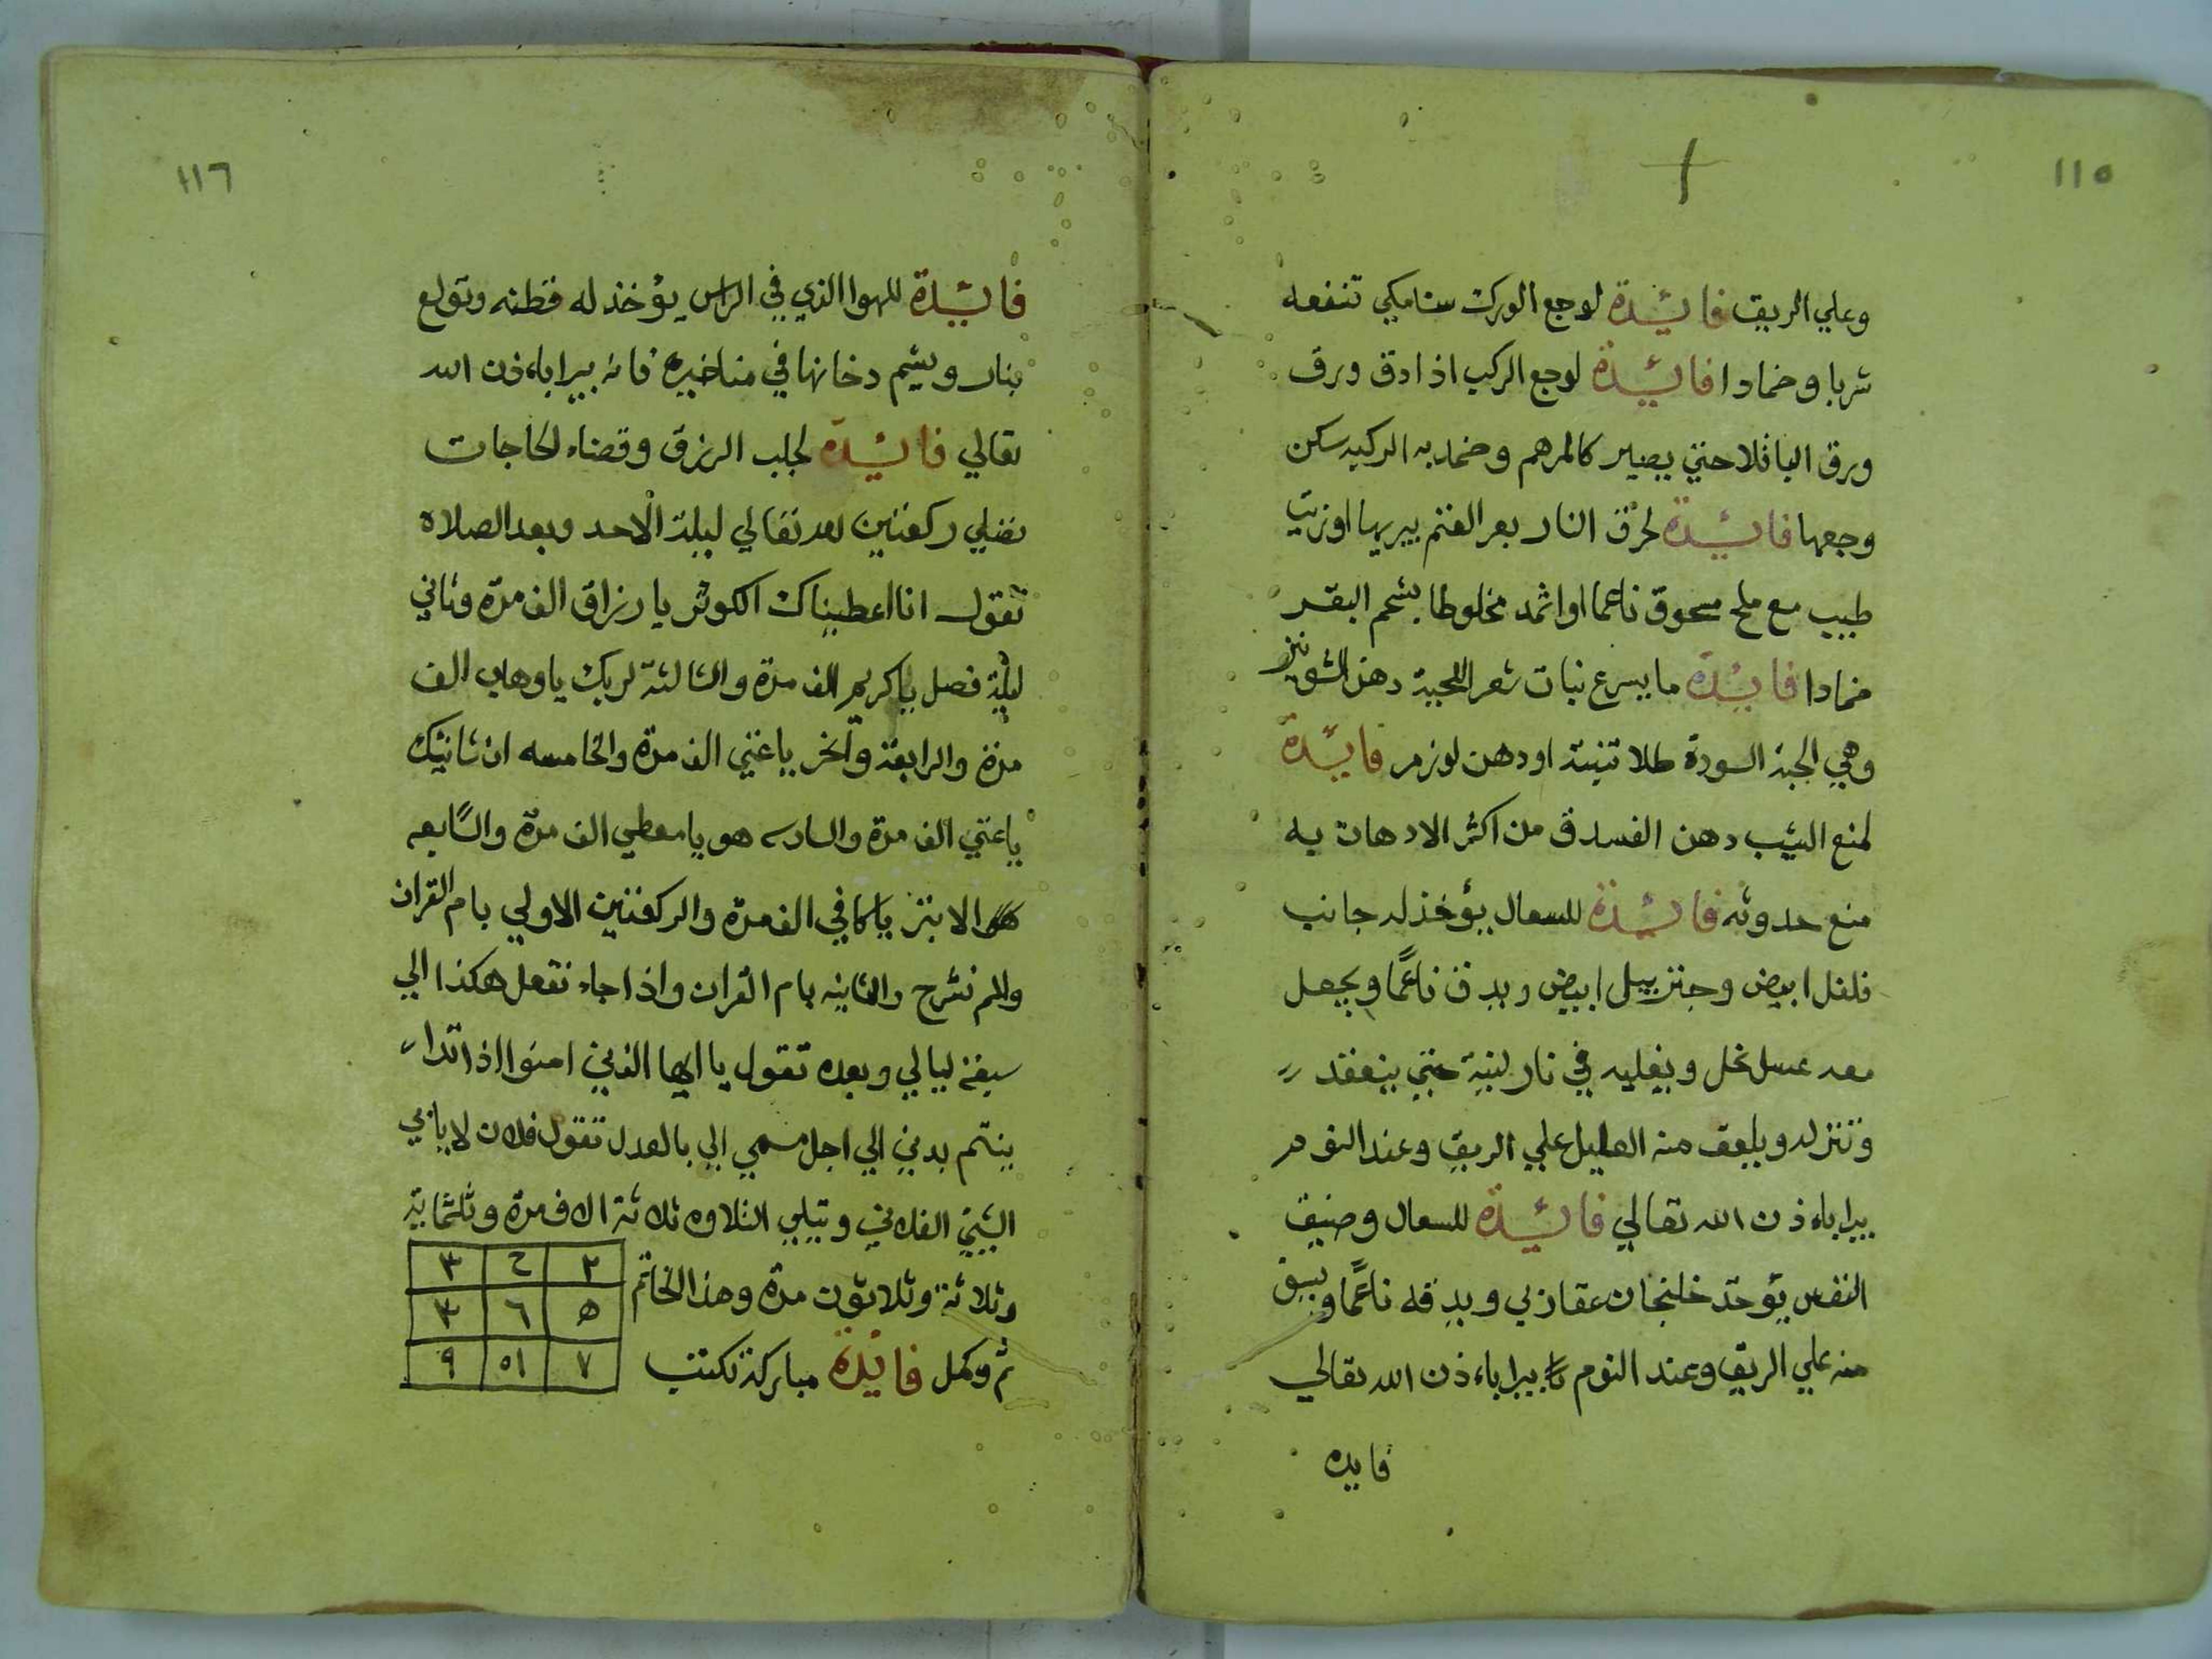 ١١٥
وعلي الريق فائيدة لوجع الورك سنامكي تنفعه
شربا وضمادا فائيدة لوجع الركب اذا دق ورق
ورق الباقلا حتي يصير كالمرهم وضمد به الركبه سكن
وجعها فائيدة لحرق النار بعر الغنم يبريها او زيت
طيب مع ملح مسحوق ناعما او اثمد مخلوطا بشحم البقر
ضمادا فائيدة ما يسرع نبات شعر اللحية دهن الشونيز
وهي الحبة السودة طلا تنبته او دهن لوز مر فائيدة
لمنع الشيب دهن الفسدق من اكثر الادهان به
منع حدوثه فائيدة للسعال يؤخذ له جانب
فلفل ابيض وجنزبيل ابيض ويدق ناعمًا ويجعل
معه عسل نحل ويغليه في نار لينة حتي ينعقد
وتنزله ويلعق منه العليل علي الريق وعند النوم
يبرا باءذن الله تعالي فائيدة للسعال وضيق
النفس يؤخذ خلنجان عقاربي ويدقه ناعمًا ويسف
منه علي الريق وعند النوم يبرا باءذن الله تعالي
فايده
١١٦
فائيدة للهوا الذي في الراس يؤخذ له قطنه وتولع
بنار ويشم دخانها في مناخيره فانه يبرا باءذن الله
تعالي فائيدة لجلب الرزق وقضاء الحاجات
تصلي ركعتين لله تعالي ليلة الاحد وبعد الصلاه
تقول انا اعطيناك الكوثر يا رزاق الف مرة وثاني
ليلة فصل يا كريم الف مرة والثالثة لربك يا وهاب الف
مرة والرابعة وآنحر يا غني الف مرة والخامسه ان شانيك
يا غني الف مرة والسادسه هو يا معطي الف مرة والسابعه
الابتر يا كافي الف مرة والركعتين الاولي بام القران
والم نشرح والثانيه بام القران واذا جاء تفعل هكذا الي
سبعة ليالي وبعده تقول يا ايها الذين امنوا اذا تدا
ينتم بدين الي اجل مسمي الي بالعدل تقول فلان لا يابي
الشيئ الفلاني وتبلي التلاوه ثلاثة الاف مرة وثلثماية
وثلاثة وثلاثون مرة وهذا الخاتم
تم وكمل فائيدة مباركة تكتب
٢ ٤ ٣
٥ ٦ ٣
٧ ٥١ ٩